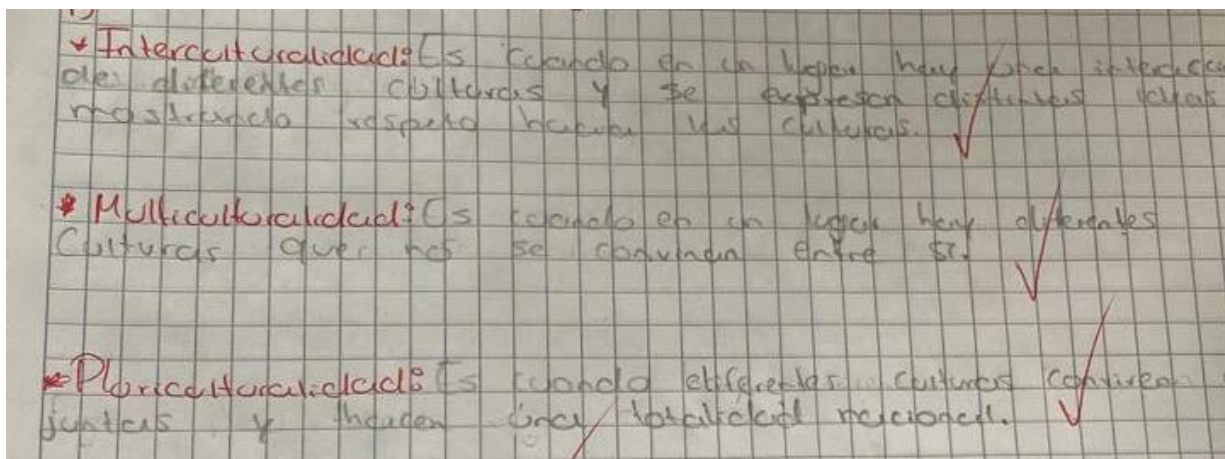 * Interculturalidad: Es cuando en un lugar hay una interacción
de diferentes culturas y se expresan distintas ideas
mostrando respeto hacia las culturas.
* Multiculturalidad: Es cuando en un lugar hay diferentes
Culturas que no se convinan entre sí.
* Pluriculturalidad: Es cuando diferentes culturas conviven
juntas y hacen una totalidad nacional.